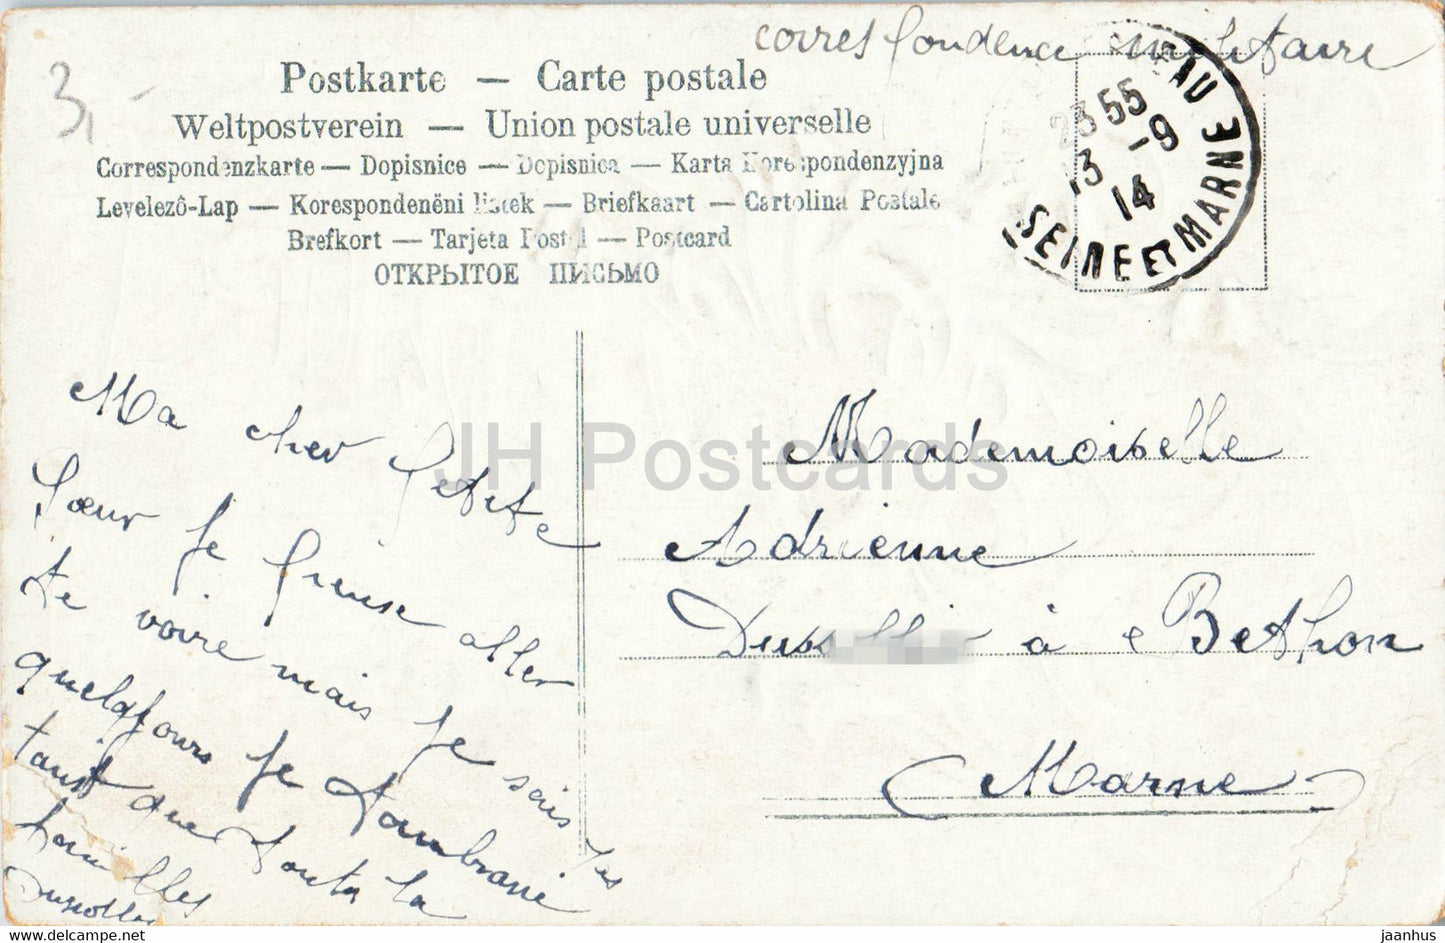 correspondence militaire
3,-
Postkarte — Carte postale
Weltpostverein — Union postale universelle
Correspondenzkarte — Dopisnice — Dopisnica — Karta Korespondenzyjna
Levelezô-Lap — Korespondenëni listek — Briefkaart — Cartolina Postale
Brefkort — Tarjeta Postal — Postcard
ОТКРЫТОЕ ПИСЬМО
EAU
23 55
13 -9
14
SEINE ET MARNE
JH Postcards
Ma cher Petite
Sœur je pense aller
te voire mais je sais pas
quelqfours je
tant que toute la
familles
Mademoiselle
Adrienne
à Bethon
Marne
www.hippostcard.com/store/jhpostcards
jaanhus